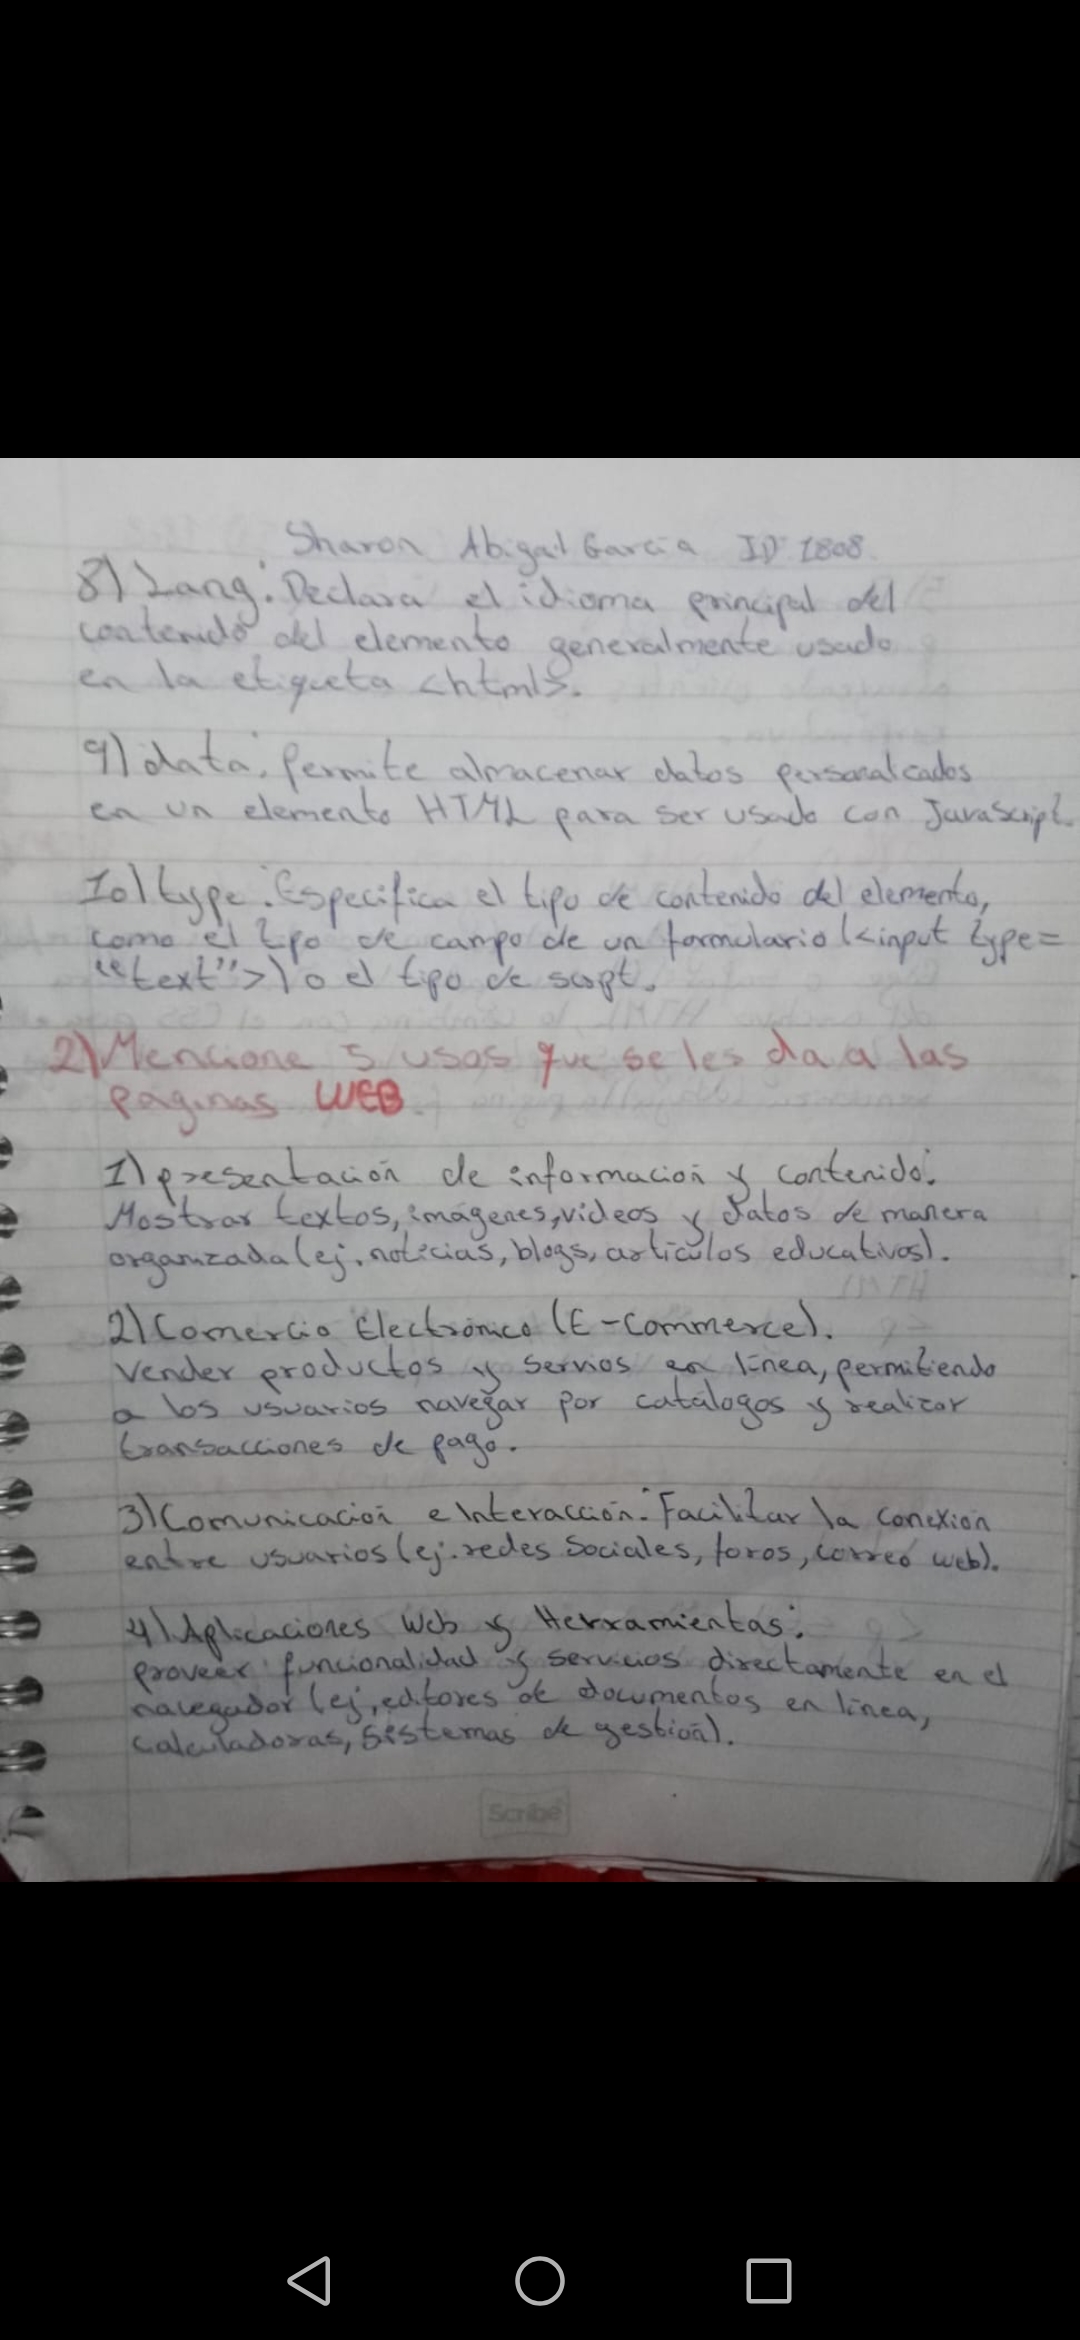 Sharon Abigal Garcia ID 1808
8) Lang: Declara el idioma principal del
contenido del elemento generalmente usado
en la etiqueta <html>.
9) data: Permite almacenar datos personalcados
en un elemento HTML para ser usado con JavaScript.
10) type: Especifica el tipo de contenido del elemento,
como el tpo de campo de un formulario (<input type=
"text">) o el tipo de scrpt.
2) Mencione 5 usos que se les da a las
paginas WEB.
1) presentación de información y contenido:
Mostrar textos, imágenes, videos y datos de manera
organizada (ej. noticias, blogs, artículos educativos).
2) Comercio Electrónico (E-Commerce).
Vender productos y servios en línea, permitiendo
a los usuarios navegar por catálogos y realizar
transacciones de pago.
3) Comunicación e Interacción: Facilitar la conexión
entre usuarios (ej. redes Sociales, foros, correo web).
4) Aplicaciones Web y Herramientas:
proveer funcionalidad y servicios directamente en el
navegador (ej, editores de documentos en línea,
calculadoras, sistemas de gestión).
Scribe